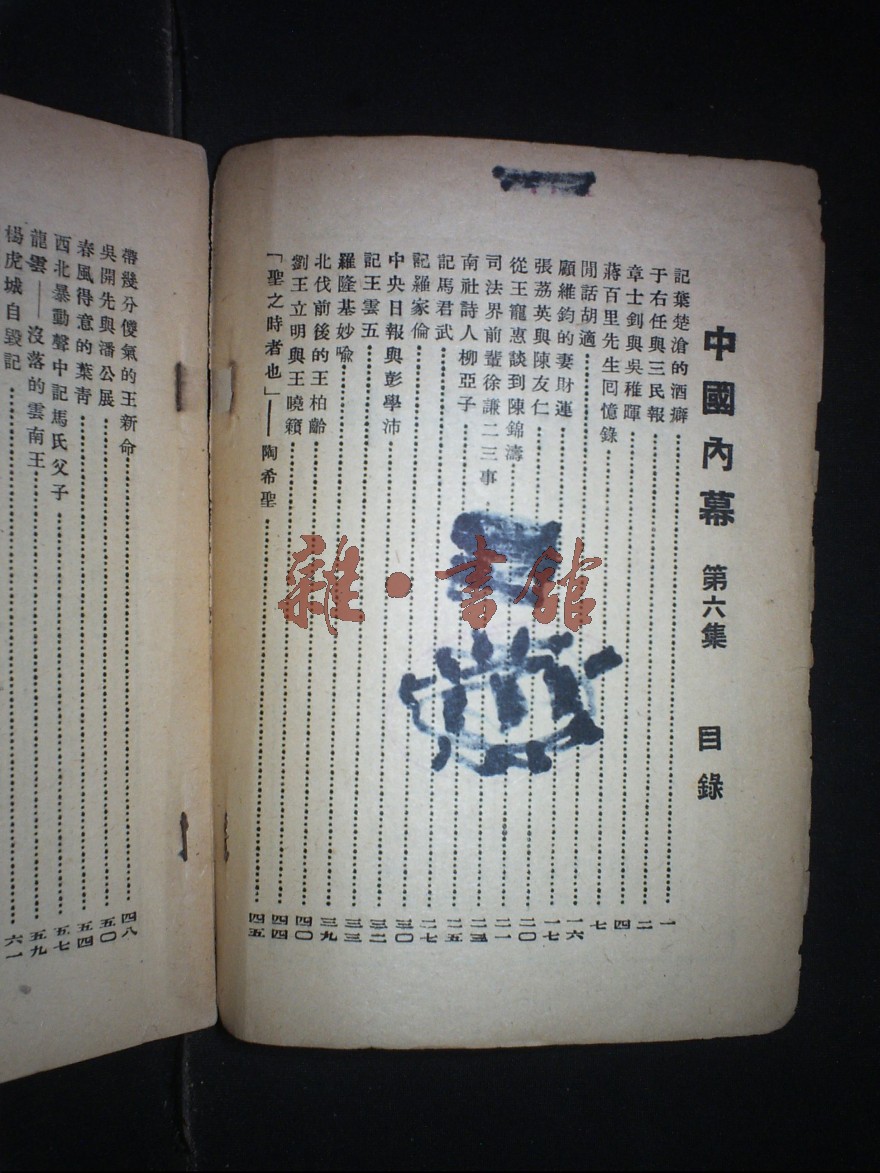 中國內幕 第六集 目錄
記葉楚滄的酒癖……一
于右任與三民報……二
章士釗與吳稚暉……四
蔣百里先生回憶錄……七
閒話胡適……一六
顧維鈞的妻財運……一七
張荔英與陳友仁……二〇
從王寵惠談到陳錦濤……二一
司法界前輩徐謙二三事……二三
南社詩人柳亞子……二五
記馬君武……二七
記羅家倫……三〇
中央日報與彭學沛……三二
記王雲五……三三
羅隆基妙喻……三九
北伐前後的王柏齡……四〇
劉王立明與王曉籟……四四
「聖之時者也」——陶希聖……四五
帶幾分傻氣的王新命……四八
吳開先與潘公展……五〇
春風得意的葉青……五四
西北暴動聲中記馬氏父子……五七
龍雲——沒落的雲南王……五九
楊虎城自毀記……六一
雜·書館